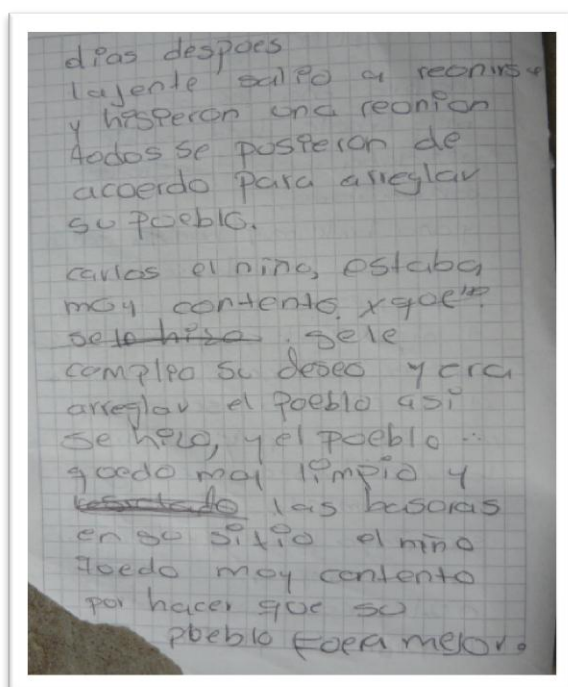 dias despoes
lajente salio a reonirse
y hisieron una reonion
todos se posieron de
acoerdo para arreglar
su poeblo.
carlos el niño, estaba
moy contento. xque
se lo hiso. se le
complio su deseo y era
arreglar el poeblo asi
se hizo, y el poeblo
quedo moi limpio y
las basoras
en so sitio el niño
quedo moy contento
por hacer que so
poeblo foera mejor.